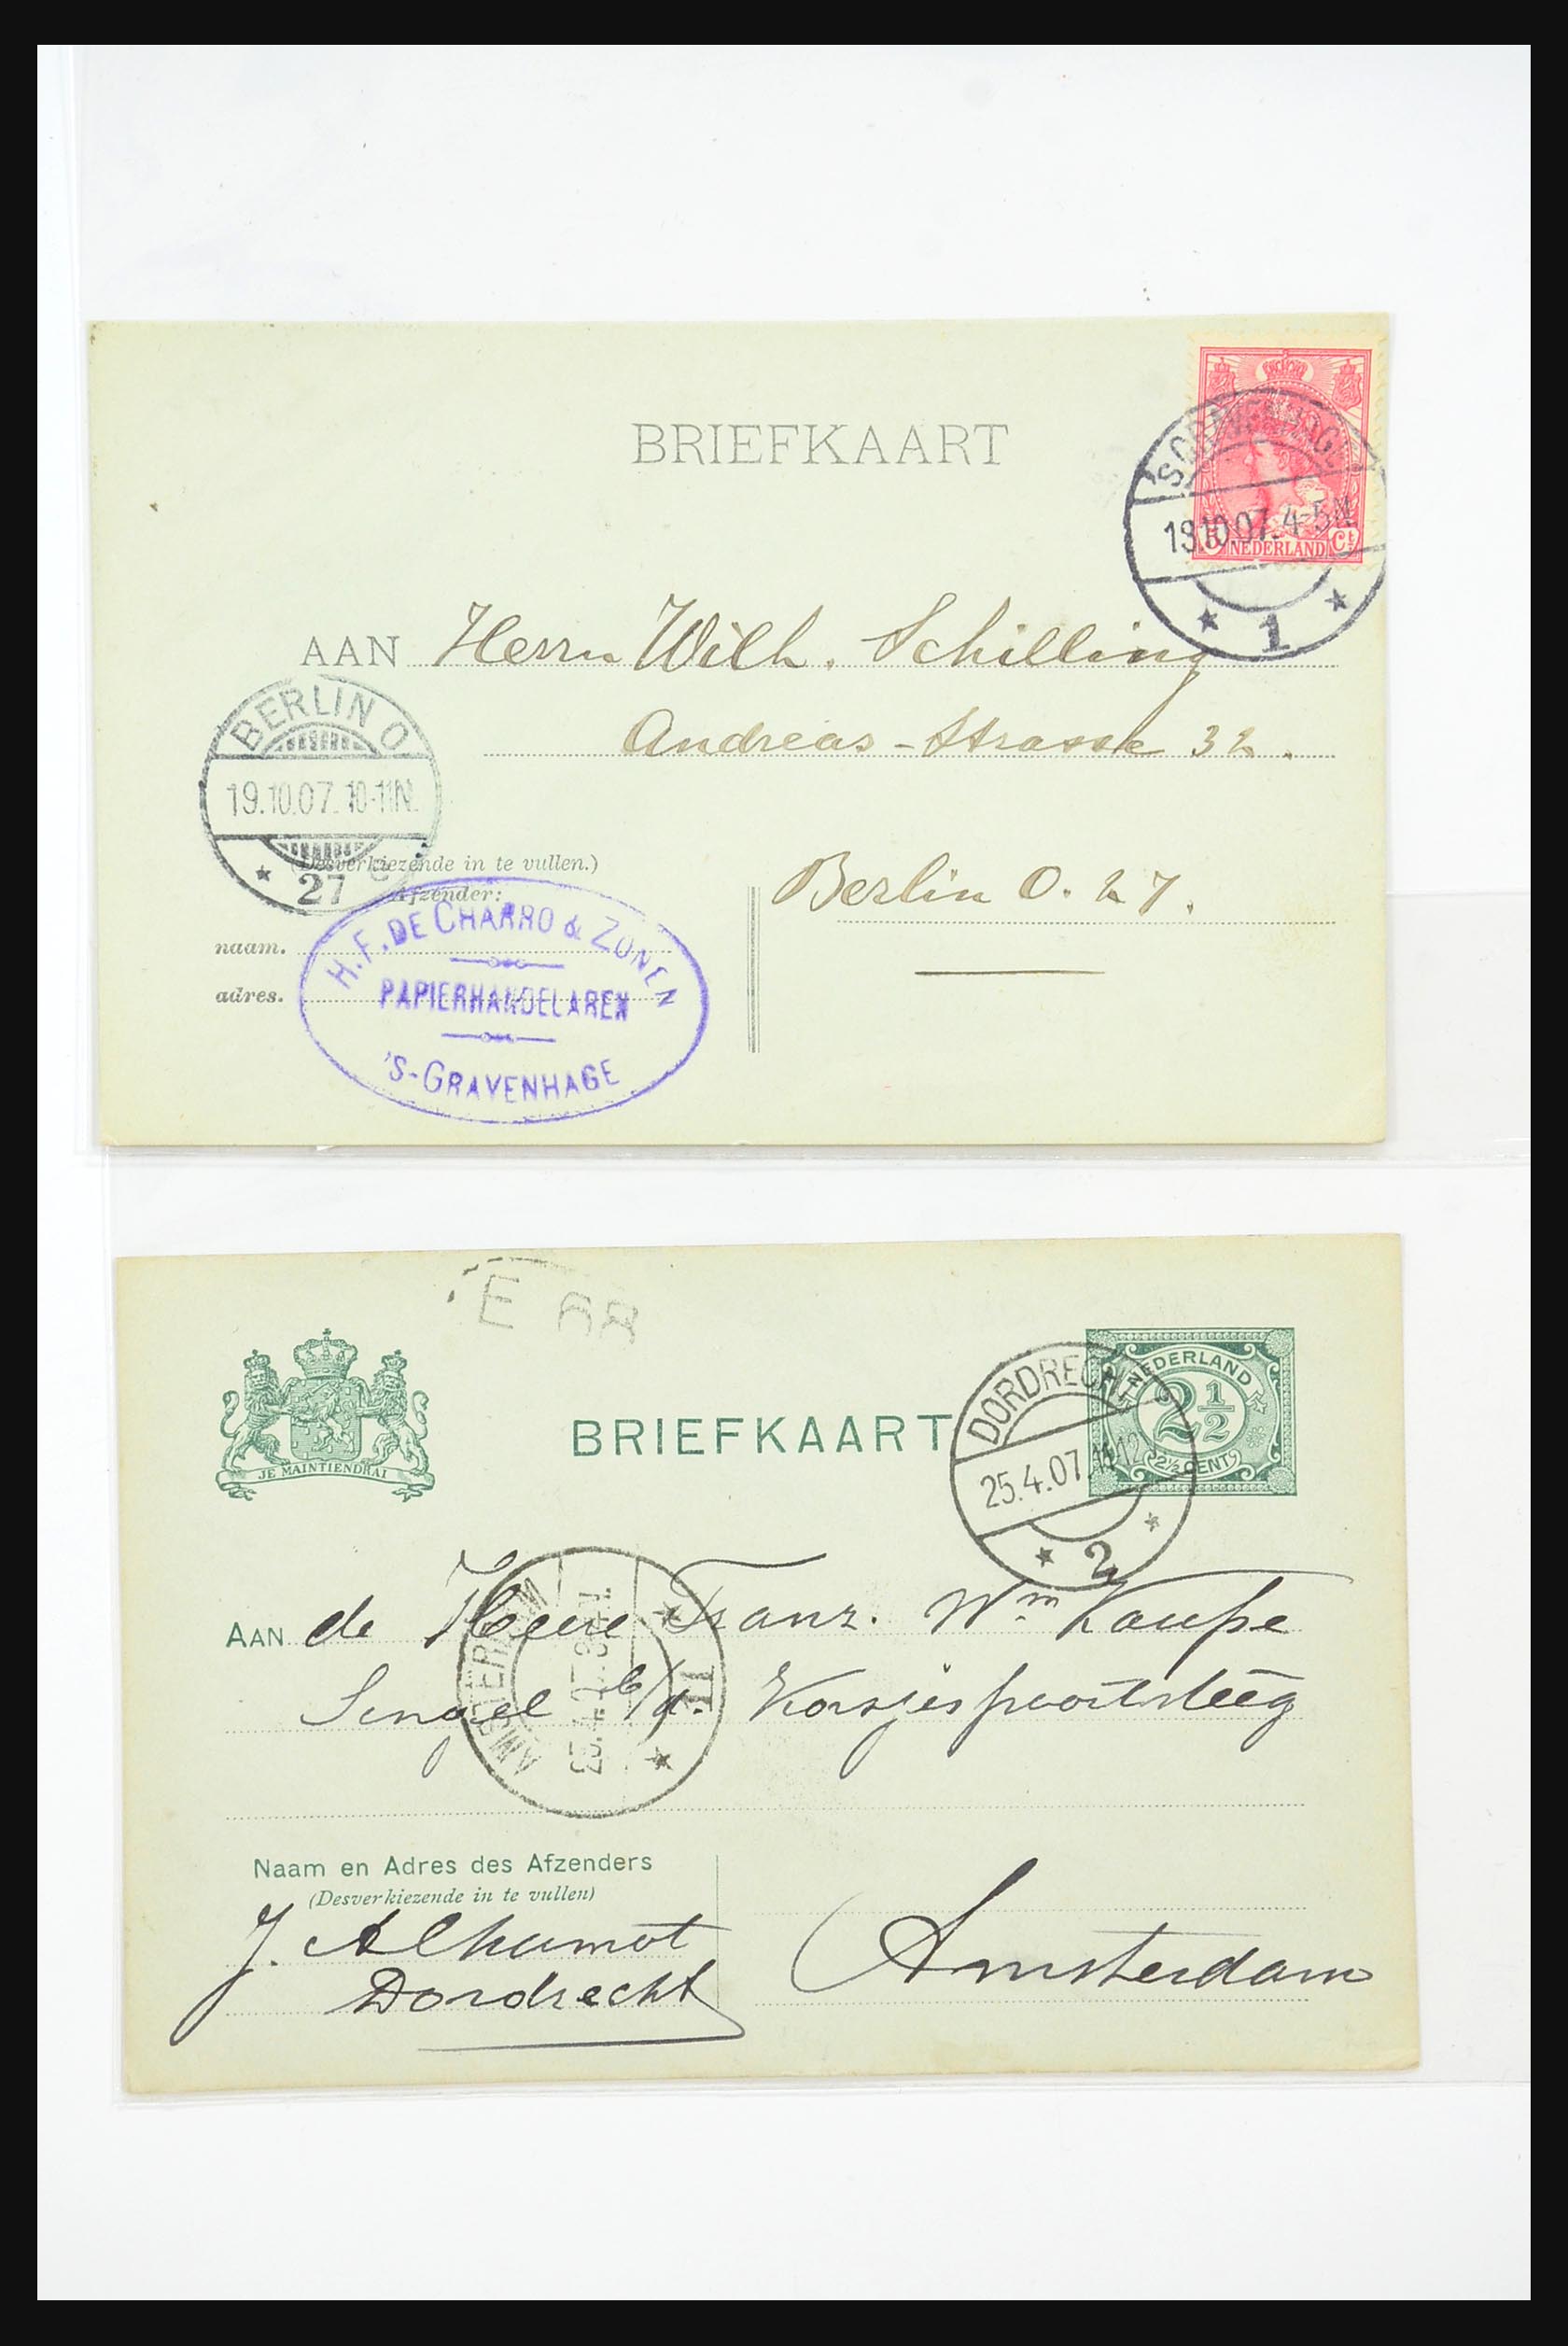 BRIEFKAART
'SGRAVENHAGE
18.10.07. 4-5N
1
5 NEDERLAND Ct
AAN Herrn Wilh. Schilling
Andreas-Strasse 32.
BERLIN O
19.10.07. 10-11N.
27
(Desverkiezende in te vullen.)
Afzender:
naam.
adres.
Berlin O. 27.
H. F. DE CHARRO & ZONEN
PAPIERHANDELAREN
'S-GRAVENHAGE
E
JE MAINTIENDRAI
BRIEFKAART
DORDRECHT
25.4.07. 11-12
2
NEDERLAND
2½
2½ CENT
AAN de Heere Franz. Wm Kaupe
Singel b/d. Korsjespoortsteeg
AMSTERDAM
25.4.07
11
Naam en Adres des Afzenders
(Desverkiezende in te vullen)
J.
Dordrecht
Amsterdam